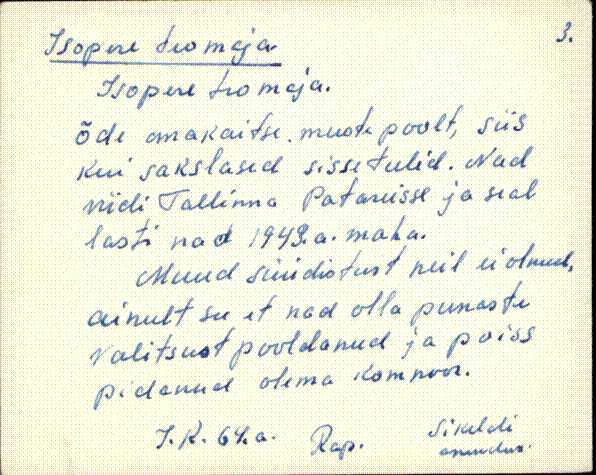 3.
Isopere tromaja.
Isopere tromaja.
õde omakaitse meeste poolt, siis
kui sakslased sisse tulid. Nad
viidi Tallinna Patareisse ja seal
lasti nad 1943.a. maha.
Muud süüdistust neil ei olnud,
ainult see et nad olla punaste
valitsust pooldanud ja poiss
pidanud olema komnoor.
J.K. 64.a. Rap. Sikeldi
asundus.